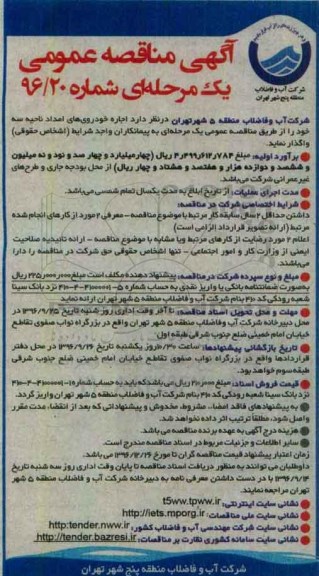 آگهی مناقصه عمومی
یک مرحله‌ای شماره ۹۶/۲۰
شرکت آب و فاضلاب
منطقه پنج شهر تهران
شرکت آب و فاضلاب منطقه ۵ شهر تهران درنظر دارد اجاره خودروی‌های امداد ناحیه سه
خود را از طریق مناقصه عمومی یک مرحله‌ای به پیمانکاران واجد شرایط (اشخاص حقوقی)
واگذار نماید.
برآورد اولیه: مبلغ ۴٫۴۹۹٫۶۱۲٫۷۸۴ ریال (چهارمیلیارد و چهار صد و نود و نه میلیون
و ششصد و دوازده هزار و هفتصد و هشتاد و چهار ریال) از محل بودجه جاری و طرح‌های
غیرعمرانی شرکت می‌باشد.
مدت اجرای عملیات: از تاریخ ابلاغ به مدت یکسال تمام شمسی می‌باشد.
شرایط اختصاصی شرکت در مناقصه:
داشتن حداقل ۲ سال سابقه کار مرتبط با موضوع مناقصه – معرفی ۲ مورد از کارهای انجام شده
مرتبط (ارائه تصویر قرارداد الزامی است)
اعلام ۲ مورد رضایت از کارهای مرتبط ویا مشابه با موضوع مناقصه – ارائه تائیدیه صلاحیت
ایمنی از وزارت کار و امور اجتماعی – تنها اشخاص حقوقی حق شرکت در مناقصه را دارا
می‌باشند.
مبلغ و نوع سپرده شرکت درمناقصه: پیشنهاد دهنده مکلف است مبلغ ۲۲۵٫۰۰۰٫۰۰۰ ریال
به‌صورت ضمانتنامه بانکی یا واریز نقدی به حساب شماره نزد بانک سینا
شعبه رودکی کد ۴۱۰ بنام شرکت آب و فاضلاب منطقه ۵ شهر تهران ارائه نماید
مهلت و محل تحویل اسناد مناقصه: تا آخر وقت اداری روز شنبه تاریخ ۱۳۹۶/۹/۲۵ در
محل دبیرخانه شرکت آب و فاضلاب منطقه ۵ شهر تهران واقع در بزرگراه نواب صفوی تقاطع
خیابان امام خمینی ضلع جنوب شرقی طبقه اول
تاریخ بازگشائی پیشنهادها: ساعت روز یکشنبه تاریخ ۱۳۹۶/۹/۲۶ در محل دفتر
قراردادها واقع در بزرگراه نواب صفوی تقاطع خیابان امام خمینی ضلع جنوب شرقی
طبقه سوم خواهد بود.
قیمت فروش اسناد: مبلغ ریال می باشد که باید به حساب شماره
نزد بانک سینا شعبه رودکی کد ۴۱۰ بنام شرکت آب و فاضلاب منطقه ۵ شهر تهران واریز گردد.
به پیشنهادهای فاقد امضاء، مشروط، مخدوش و پیشنهاداتی که بعد از انقضاء مدت مقرر
واصل شود، مطلقا ترتیب اثر داده نخواهد شد.
هزینه درج آگهی به عهده برنده مناقصه می باشد.
سایر اطلاعات و جزئیات مربوط در اسناد مناقصه مندرج است.
زمان اعتبار پیشنهاد قیمت مناقصه گران تا مورخ ۱۳۹۶/۱۲/۲۶ می باشد.
داوطلبان می توانند به منظور دریافت اسناد مناقصه تا پایان وقت اداری روز سه شنبه تاریخ
۱۳۹۶/۹/۱۴ با در دست داشتن معرفی نامه به دبیرخانه شرکت آب و فاضلاب منطقه ۵ شهر
تهران مراجعه نمایند.
نشانی سایت اینترنتی: t5ww.tpww.ir
نشانی سایت ملی مناقصات: http://iets.mporg.ir
نشانی سایت شرکت مهندسی آب و فاضلاب کشور: http:tender.nww.ir
نشانی سایت سامانه کشوری نظارت بر مناقصات: http://tender.bazresi.ir
شرکت آب و فاضلاب منطقه پنج شهر تهران